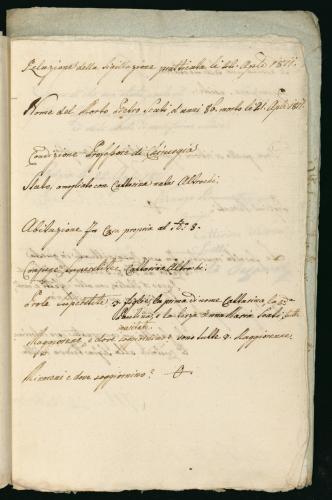 Relazione della sigillazione pratticata li 21. Aprile 1817.
Nome del Morto Pietro Scati, d'anni 86. morto li 21. Aprile 1817.
Condizione Professore di Chirurgia
Stato, amogliato con Cattarina nata Albrochi.
Abitazione In Casa propria al No. 8.
Coniuge superstite Cattarina Albrochi.
Prole superstite 3. figlie, la prima di nome Cattarina, la 2da
Paulina, e la terza Anna Maria Scati: tutte
maritate.
Maggiorene, e dove sono tutte 3. Maggiorene.
Minoreni e dove soggiornino?